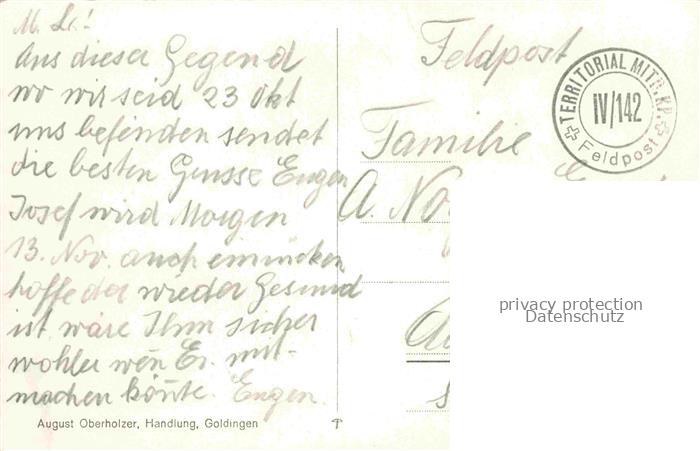 M. L.!
Aus dieser Gegend
wo wir seid 23 Okt
uns befinden sendet
die besten Grüsse Eugen
Josef wird Morgen
13. Nov. auch einrücken
hoffe der wieder Gesund
ist wäre Ihm sicher
wohler wen Er mit-
machen könte. Eugen.
August Oberholzer, Handlung, Goldingen
Feldpost
TERRITORIAL MITR. KP.
IV/142
Feldpost
Familie
A. No
privacy protection
Datenschutz